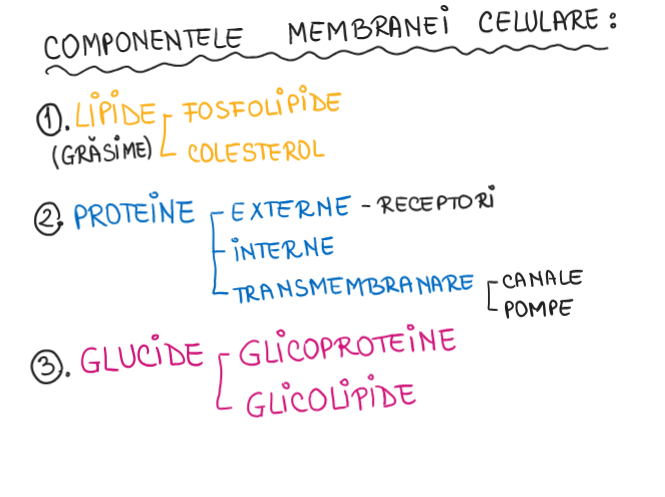 COMPONENTELE MEMBRANEI CELULARE:
1. LIPIDE FOSFOLIPIDE
(GRĂSIME) COLESTEROL
2. PROTEINE EXTERNE - RECEPTORI
INTERNE
TRANSMEMBRANARE CANALE
POMPE
3. GLUCIDE GLICOPROTEINE
GLICOLIPIDE